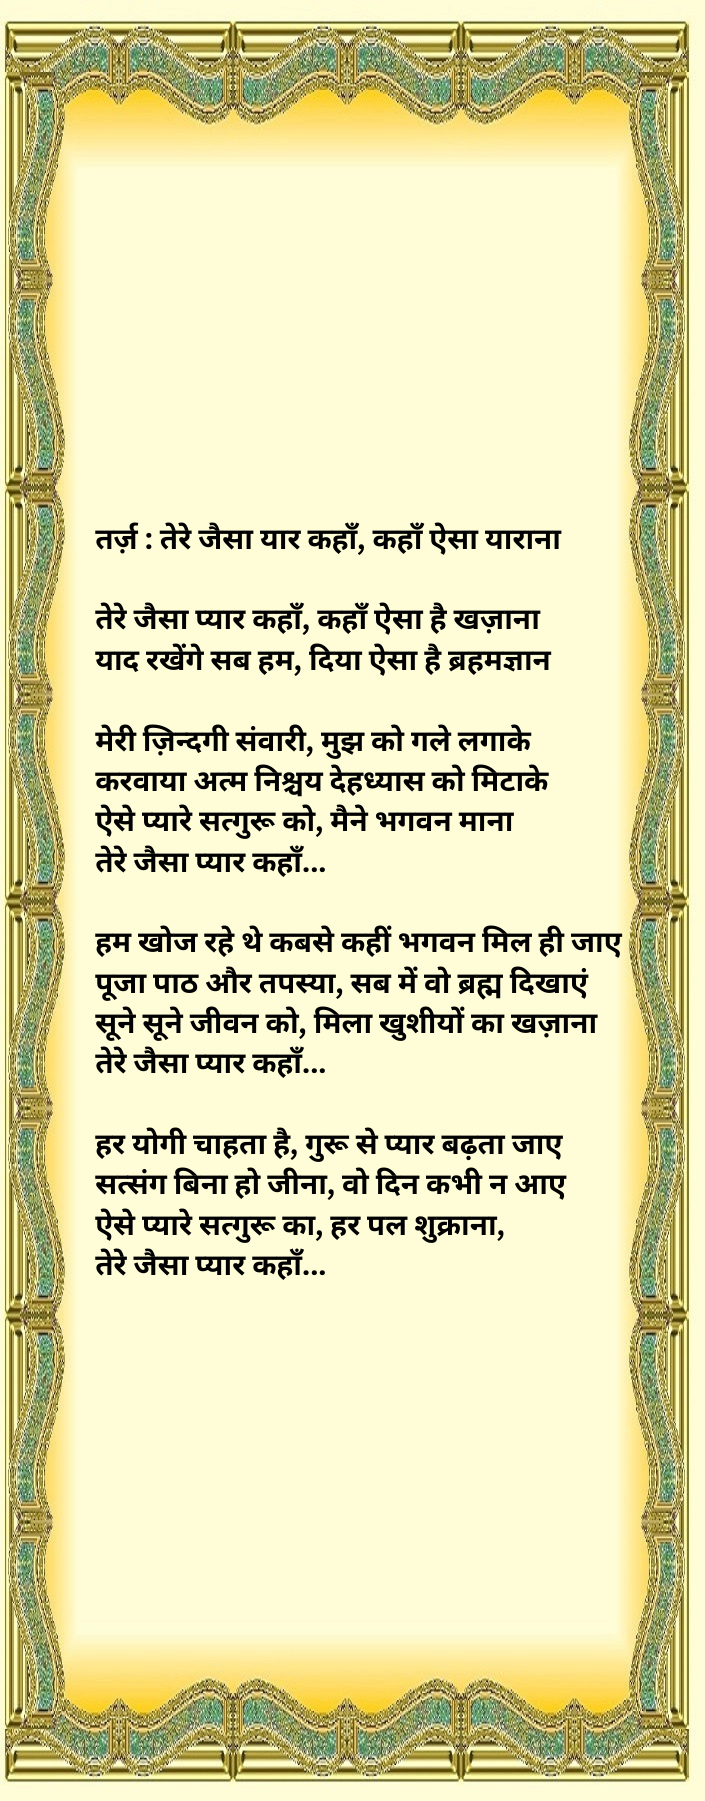 तर्ज़ : तेरे जैसा यार कहाँ, कहाँ ऐसा याराना
तेरे जैसा प्यार कहाँ, कहाँ ऐसा है खज़ाना
याद रखेंगे सब हम, दिया ऐसा है ब्रहमज्ञान
मेरी ज़िन्दगी संवारी, मुझ को गले लगाके
करवाया अत्म निश्चय देहध्यास को मिटाके
ऐसे प्यारे सत्गुरू को, मैने भगवन माना
तेरे जैसा प्यार कहाँ...
हम खोज रहे थे कबसे कहीं भगवन मिल ही जाए
पूजा पाठ और तपस्या, सब में वो ब्रह्म दिखाएं
सूने सूने जीवन को, मिला खुशीयों का खज़ाना
तेरे जैसा प्यार कहाँ...
हर योगी चाहता है, गुरू से प्यार बढ़ता जाए
सत्संग बिना हो जीना, वो दिन कभी न आए
ऐसे प्यारे सत्गुरू का, हर पल शुक्राना,
तेरे जैसा प्यार कहाँ...